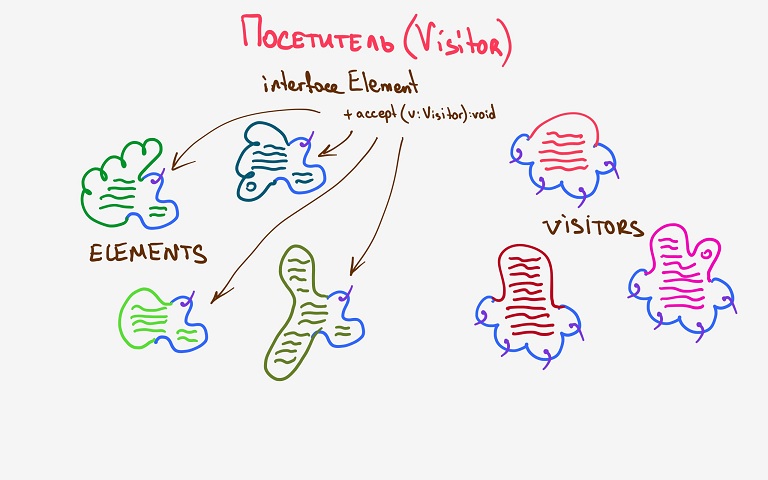 Посетитель (Visitor)
interface Element
+ accept (v: Visitor): void
ELEMENTS
VISITORS